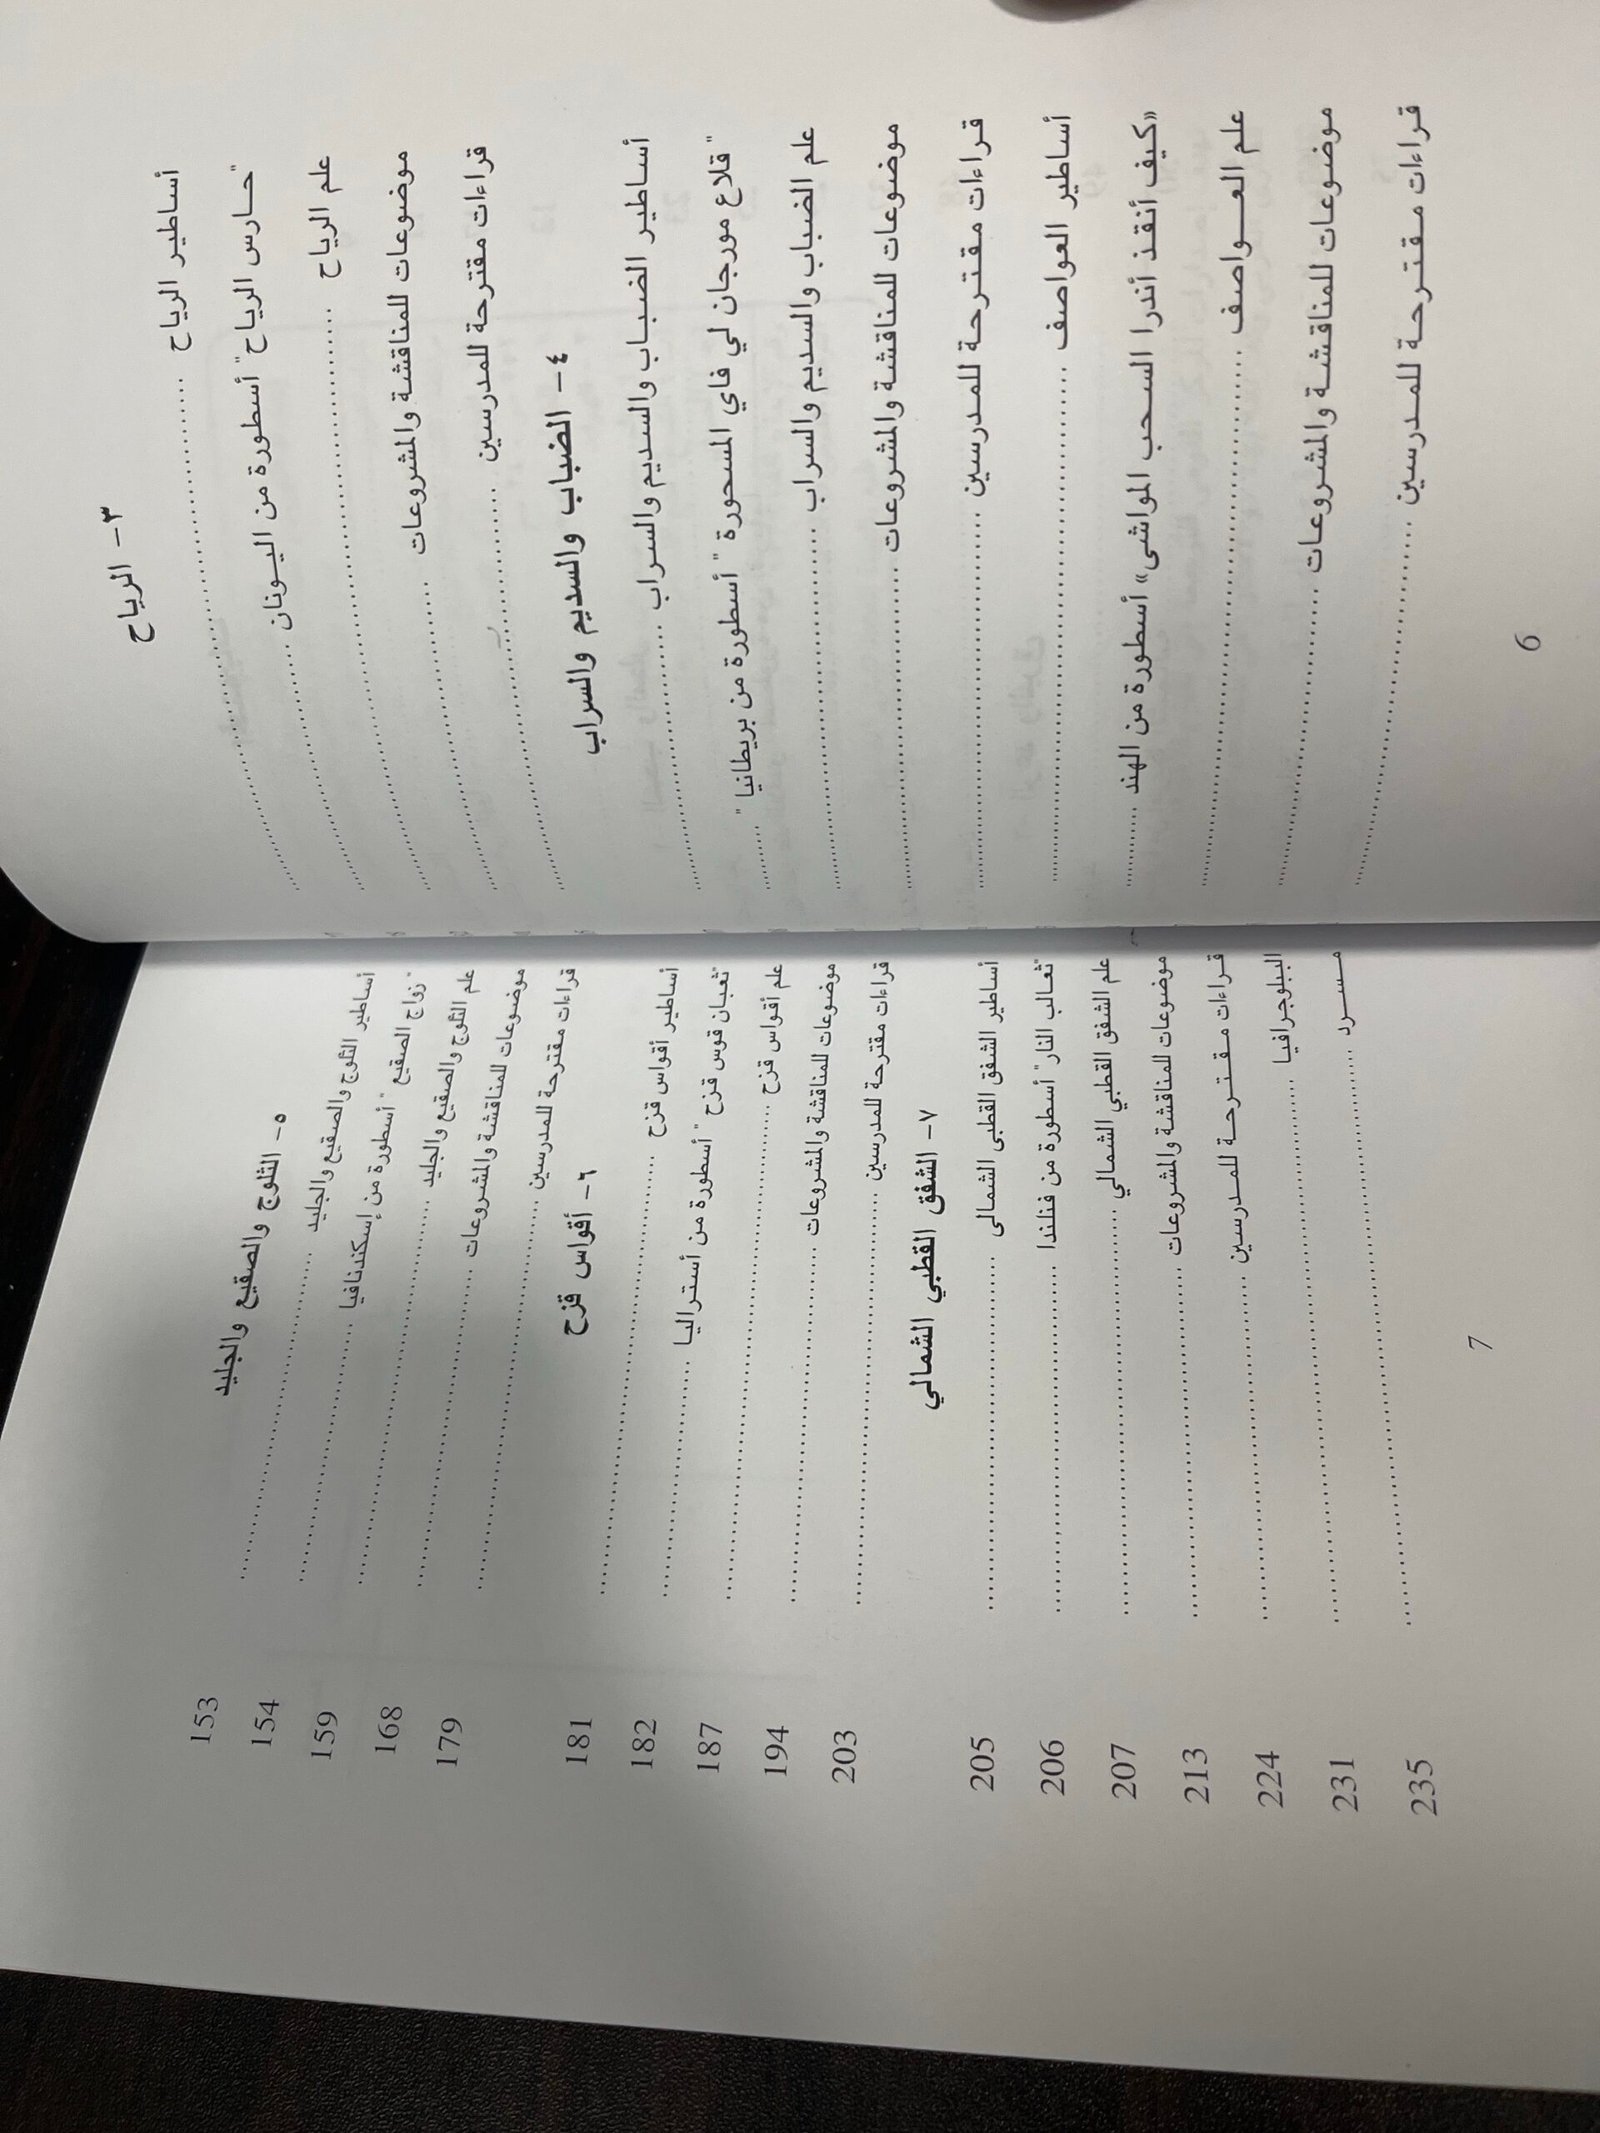 ٣- الرياح
أساطير الرياح ........................
"حارس الرياح" أسطورة من اليونان ........................
علم الرياح ........................
موضوعات للمناقشة والمشروعات ........................
قراءات مقترحة للمدرسين ........................
٤- الضباب والسديم والسراب
أساطير الضباب والسديم والسراب ........................
"قلاع مورجان لي فاي المسحورة" أسطورة من بريطانيا" ........................
علم الضباب والسديم والسراب ........................
موضوعات للمناقشة والمشروعات ........................
قراءات مقترحة للمدرسين ........................
أساطير العواصف ........................
«كيف أنقذ أندرا السحب المواشى» أسطورة من الهند ........................
علم العواصف ........................
موضوعات للمناقشة والمشروعات ........................
قراءات مقترحة للمدرسين ........................
6
٥- الثلوج والصقيع والجليد
أساطير الثلوج والصقيع والجليد ........................ 153
"زواج الصقيع" أسطورة من إسكندنافيا ........................ 154
علم الثلوج والصقيع والجليد ........................ 159
موضوعات للمناقشة والمشروعات ........................ 168
قراءات مقترحة للمدرسين ........................ 179
٦- أقواس قزح
أساطير أقواس قزح ........................ 181
"ثعبان قوس قزح" أسطورة من أستراليا ........................ 182
علم أقواس قزح ........................ 187
موضوعات للمناقشة والمشروعات ........................ 194
قراءات مقترحة للمدرسين ........................ 203
٧- الشفق القطبي الشمالي
أساطير الشفق القطبى الشمالى ........................ 205
"ثعالب النار" أسطورة من فنلندا ........................ 206
علم الشفق القطبي الشمالي ........................ 207
موضوعات للمناقشة والمشروعات ........................ 213
قراءات مقترحة للمدرسين ........................ 224
الببلوجرافيا ........................ 231
مسرد ........................ 235
7